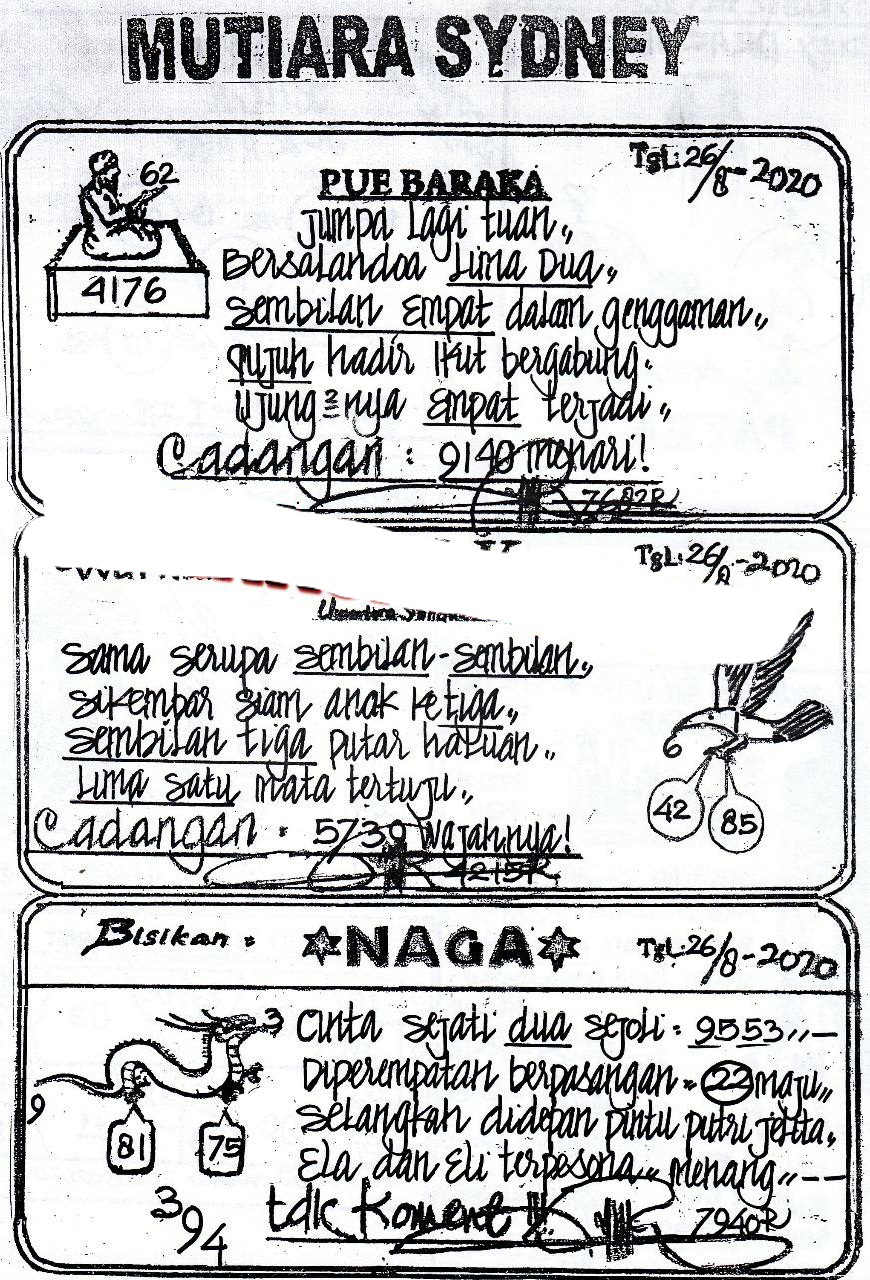 MUTIARA SYDNEY
62
4176
PUE BARAKA
TgL: 26/8-2020
Jumpa Lagi tuan,,
Bersalandoa Lima Dua,,
Sembilan Empat dalam genggaman,,
Tujuh hadir Ikut bergabung.
Ujung2nya Empat terjadi,,
Cadangan : 9140 menari!
7682R
TgL: 26/8-2020
Sama serupa sembilan-sembilan,,
Sikembar Siam anak ketiga,,
Sembilan tiga putar haluan,,
Lima satu mata tertuju,,
Cadangan : 5739 Wajahnya!
4215R
42
85
Bisikan : NAGA
TgL: 26/8-2020
3
9
81
75
394
Cinta sejati dua sejoli : 9553,,—
Diperempatan berpasangan = 22 maju,,
Selangkah didepan pintu putri jelita,
Ela dan Eli terpesona,, menang,,---
tdk Koment !!
7940R